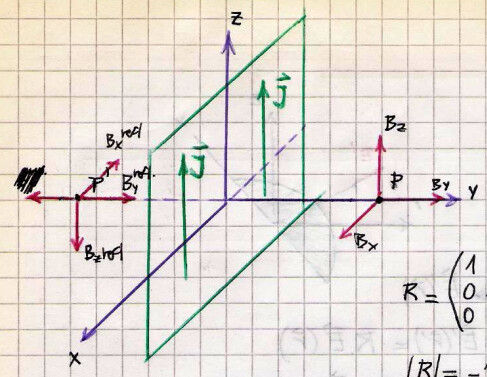 Z
J⃗
J⃗
B_x^refl
P'
B_y^refl.
B_z^refl
B_z
P
B_y
Y
B_x
X
R = (1
0
0
|R| = -1